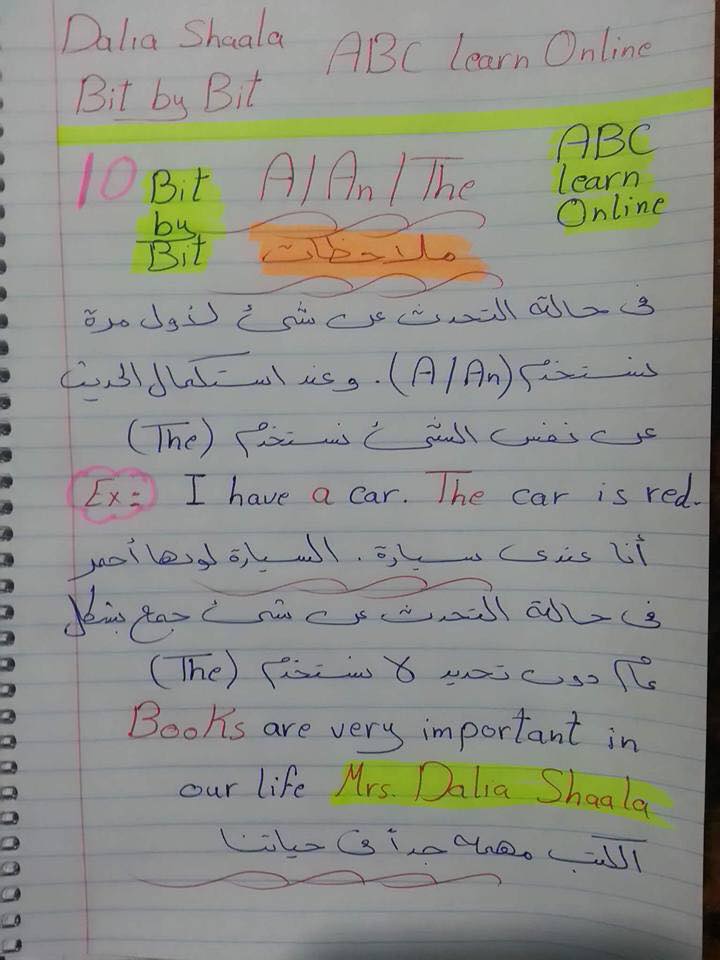 Dalia Shaala ABC learn Online
Bit by Bit
10 Bit by Bit A/An/The ABC learn Online
ملاحظات
فى حالة التحدث عن شئ لأول مرة
نستخدم (A/An). وعند استكمال الحديث
عن نفس الشئ نستخدم (The)
Ex: I have a car. The car is red.
أنا عندى سيارة. السيارة لونها أحمر
فى حالة التحدث عن شئ جمع بشكل
عام دون تحديد لا نستخدم (The)
Books are very important in
our life Mrs. Dalia Shaala
الكتب مهمة جداً فى حياتنا